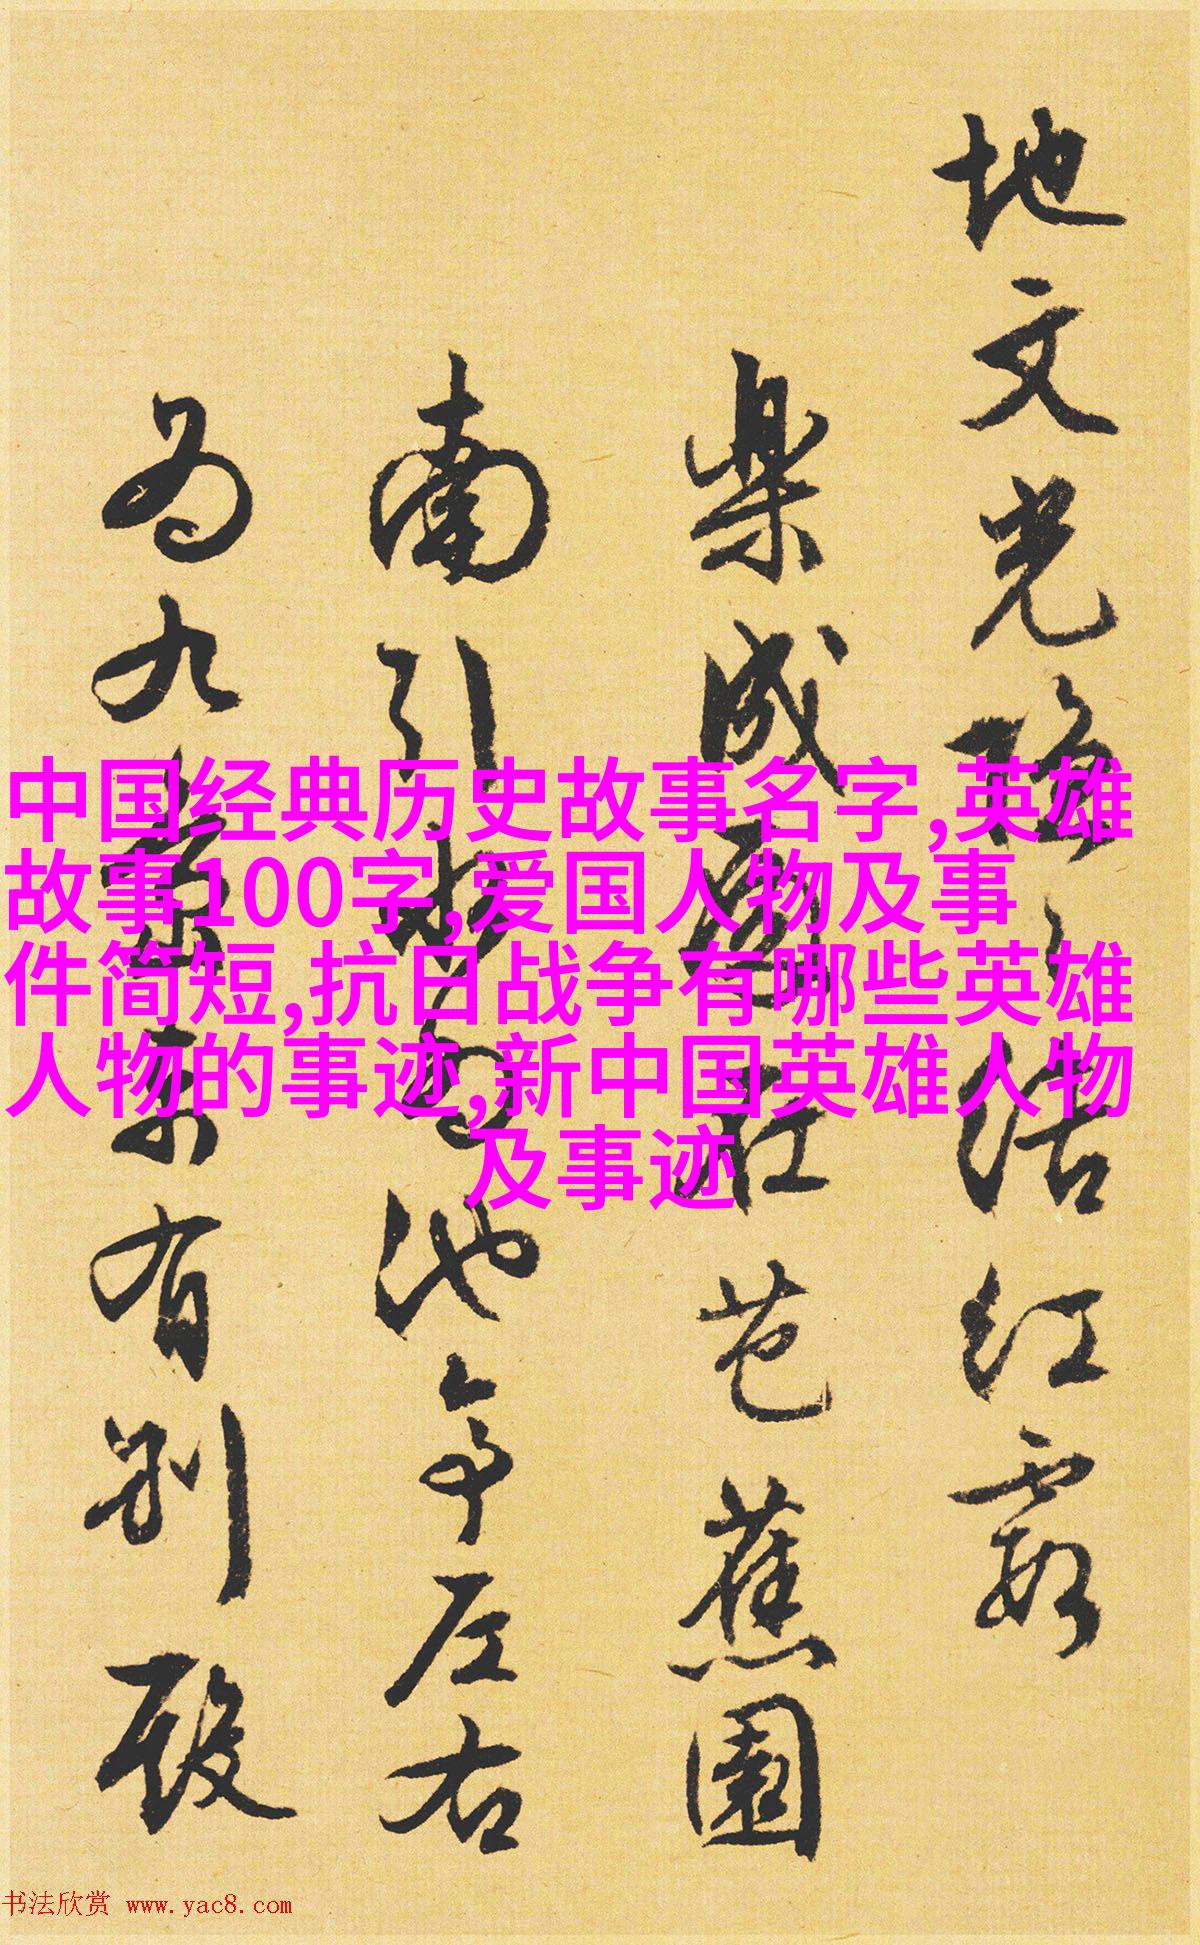 地文光隐〻结红霞
樂成在芭蕉園
南引水池亭左右
為九島東有别殿
中国经典历史故事名字,英雄
故事100字,爱国人物及事
件简短,抗日战争有哪些英雄
人物的事迹,新中国英雄人物
及事迹
书法欣赏 www.yac8.com